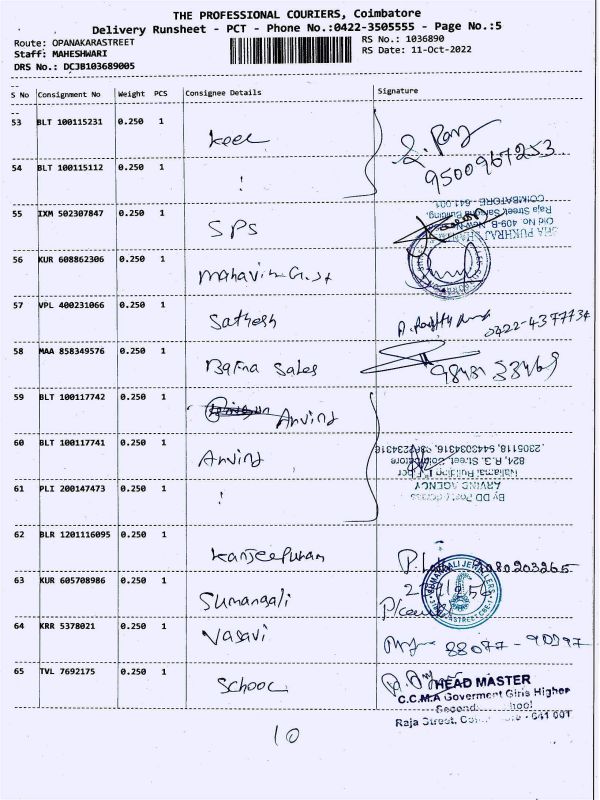 THE PROFESSIONAL COURIERS, Coimbatore
Delivery Runsheet - PCT - Phone No.:0422-3505555 - Page No.:5
Route: OPANAKARASTREET RS No.: 1036890
Staff: MAHESHWARI RS Date: 11-Oct-2022
DRS No.: DCJB103689005
S No Consignment No Weight PCS Consignee Details Signature
53 BLT 100115231 0.250 1
9500967253
54 BLT 100115112 0.250 1 !
55 IXM 502307847 0.250 1 SPS
Old No. 409-B
Raja Street
COIMBATORE - 641 001
56 KUR 608862306 0.250 1
57 VPL 400231066 0.250 1 Sathesh 0422-4377734
58 MAA 858349576 0.250 1 Bafna Sales
59 BLT 100117742 0.250 1 Arvind
60 BLT 100117741 0.250 1 Arvind
824, R.G. Street, Coimbatore
ARVIND AGENCY
61 PLI 200147473 0.250 1 !
62 BLR 1201116095 0.250 1 Kanjeepuram
63 KUR 605708986 0.250 1 Sumangali
SUMANGALI JEWELLERS
64 KRR 5378021 0.250 1 Vasavi 88077-90297
65 TVL 7692175 0.250 1 School
HEAD MASTER
C.C.M.A Goverment Girls Higher
Raja Street, 641 001
10